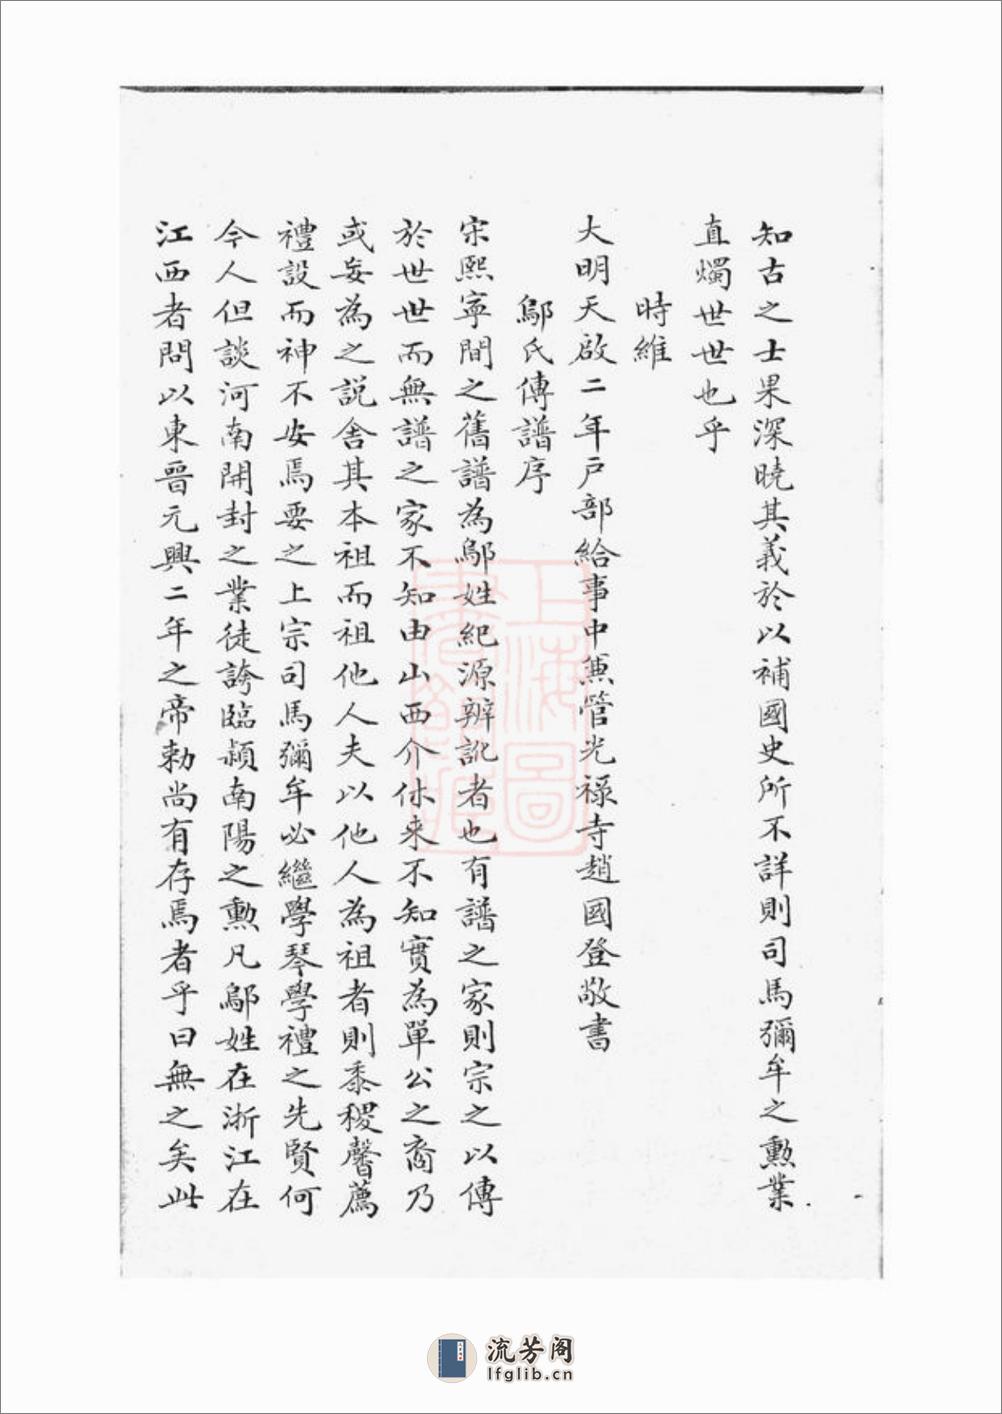 知古之士果深曉其義於以補國史所不詳則司馬彌牟之勲業
直燭世世也乎
時維
大明天啟二年戶部給事中兼管光祿寺趙國登敬書
鄔氏傳譜序
宋熙寧間之舊譜為鄔姓紀源辨訛者也有譜之家則宗之以傳
於世世而無譜之家不知由山西介休来不知實為單公之裔乃
或妄為之説舍其本祖而祖他人夫以他人為祖者則黍稷馨薦
禮設而神不安焉要之上宗司馬彌牟必繼學琴學禮之先賢何
今人但談河南開封之業徒誇臨潁南陽之勲凡鄔姓在浙江在
江西者問以東晉元興二年之帝勅尚有存焉者乎曰無之矣此
上海圖
書館藏
流芳阁
lfglib.cn